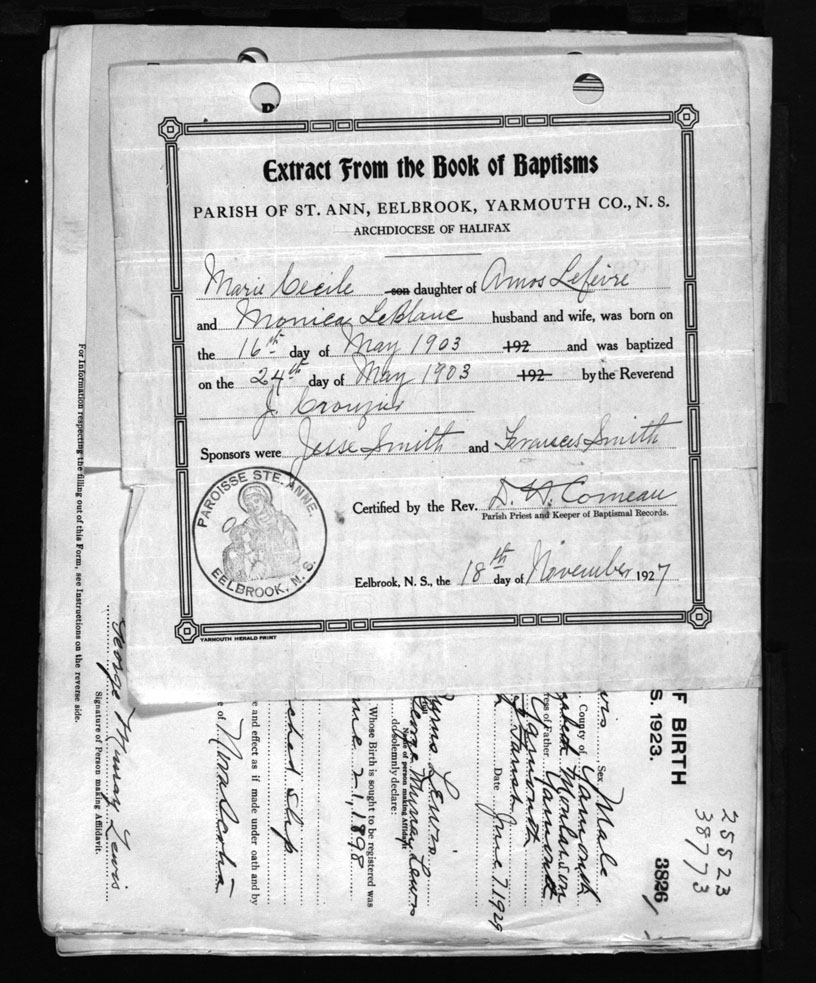 Extract From the Book of Baptisms
PARISH OF ST. ANN, EELBROOK, YARMOUTH CO., N. S.
ARCHDIOCESE OF HALIFAX
Marie Cecile son daughter of Amos Lefevre
and Monica LeBlanc husband and wife, was born on
the 16th day of May 1903 192 and was baptized
on the 24th day of May 1903 192 by the Reverend
J. Crouzier
Sponsors were Jesse Smith and Frances Smith
Certified by the Rev. D. W. Comeau
Parish Priest and Keeper of Baptismal Records.
Eelbrook, N. S., the 18th day of November 1927
PAROISSE STE. ANNE.
EELBROOK, N. S.
YARMOUTH HERALD PRINT
25523
38773
3826
F BIRTH
S. 1923.
Sex Male
County of Yarmouth
Monbarson
ress of Father Yarmouth
Yarmouth
Date June 7, 1929
Lewis
George Murray Lewis
Name of person making Affidavit
do solemnly declare:
Whose Birth is sought to be registered was
21, 1898
ched slip
e and effect as if made under oath and by
e of Nova Scotia
George Murray Lewis
Signature of Person making Affidavit.
For Information respecting the filling out of this Form, see Instructions on the reverse side.